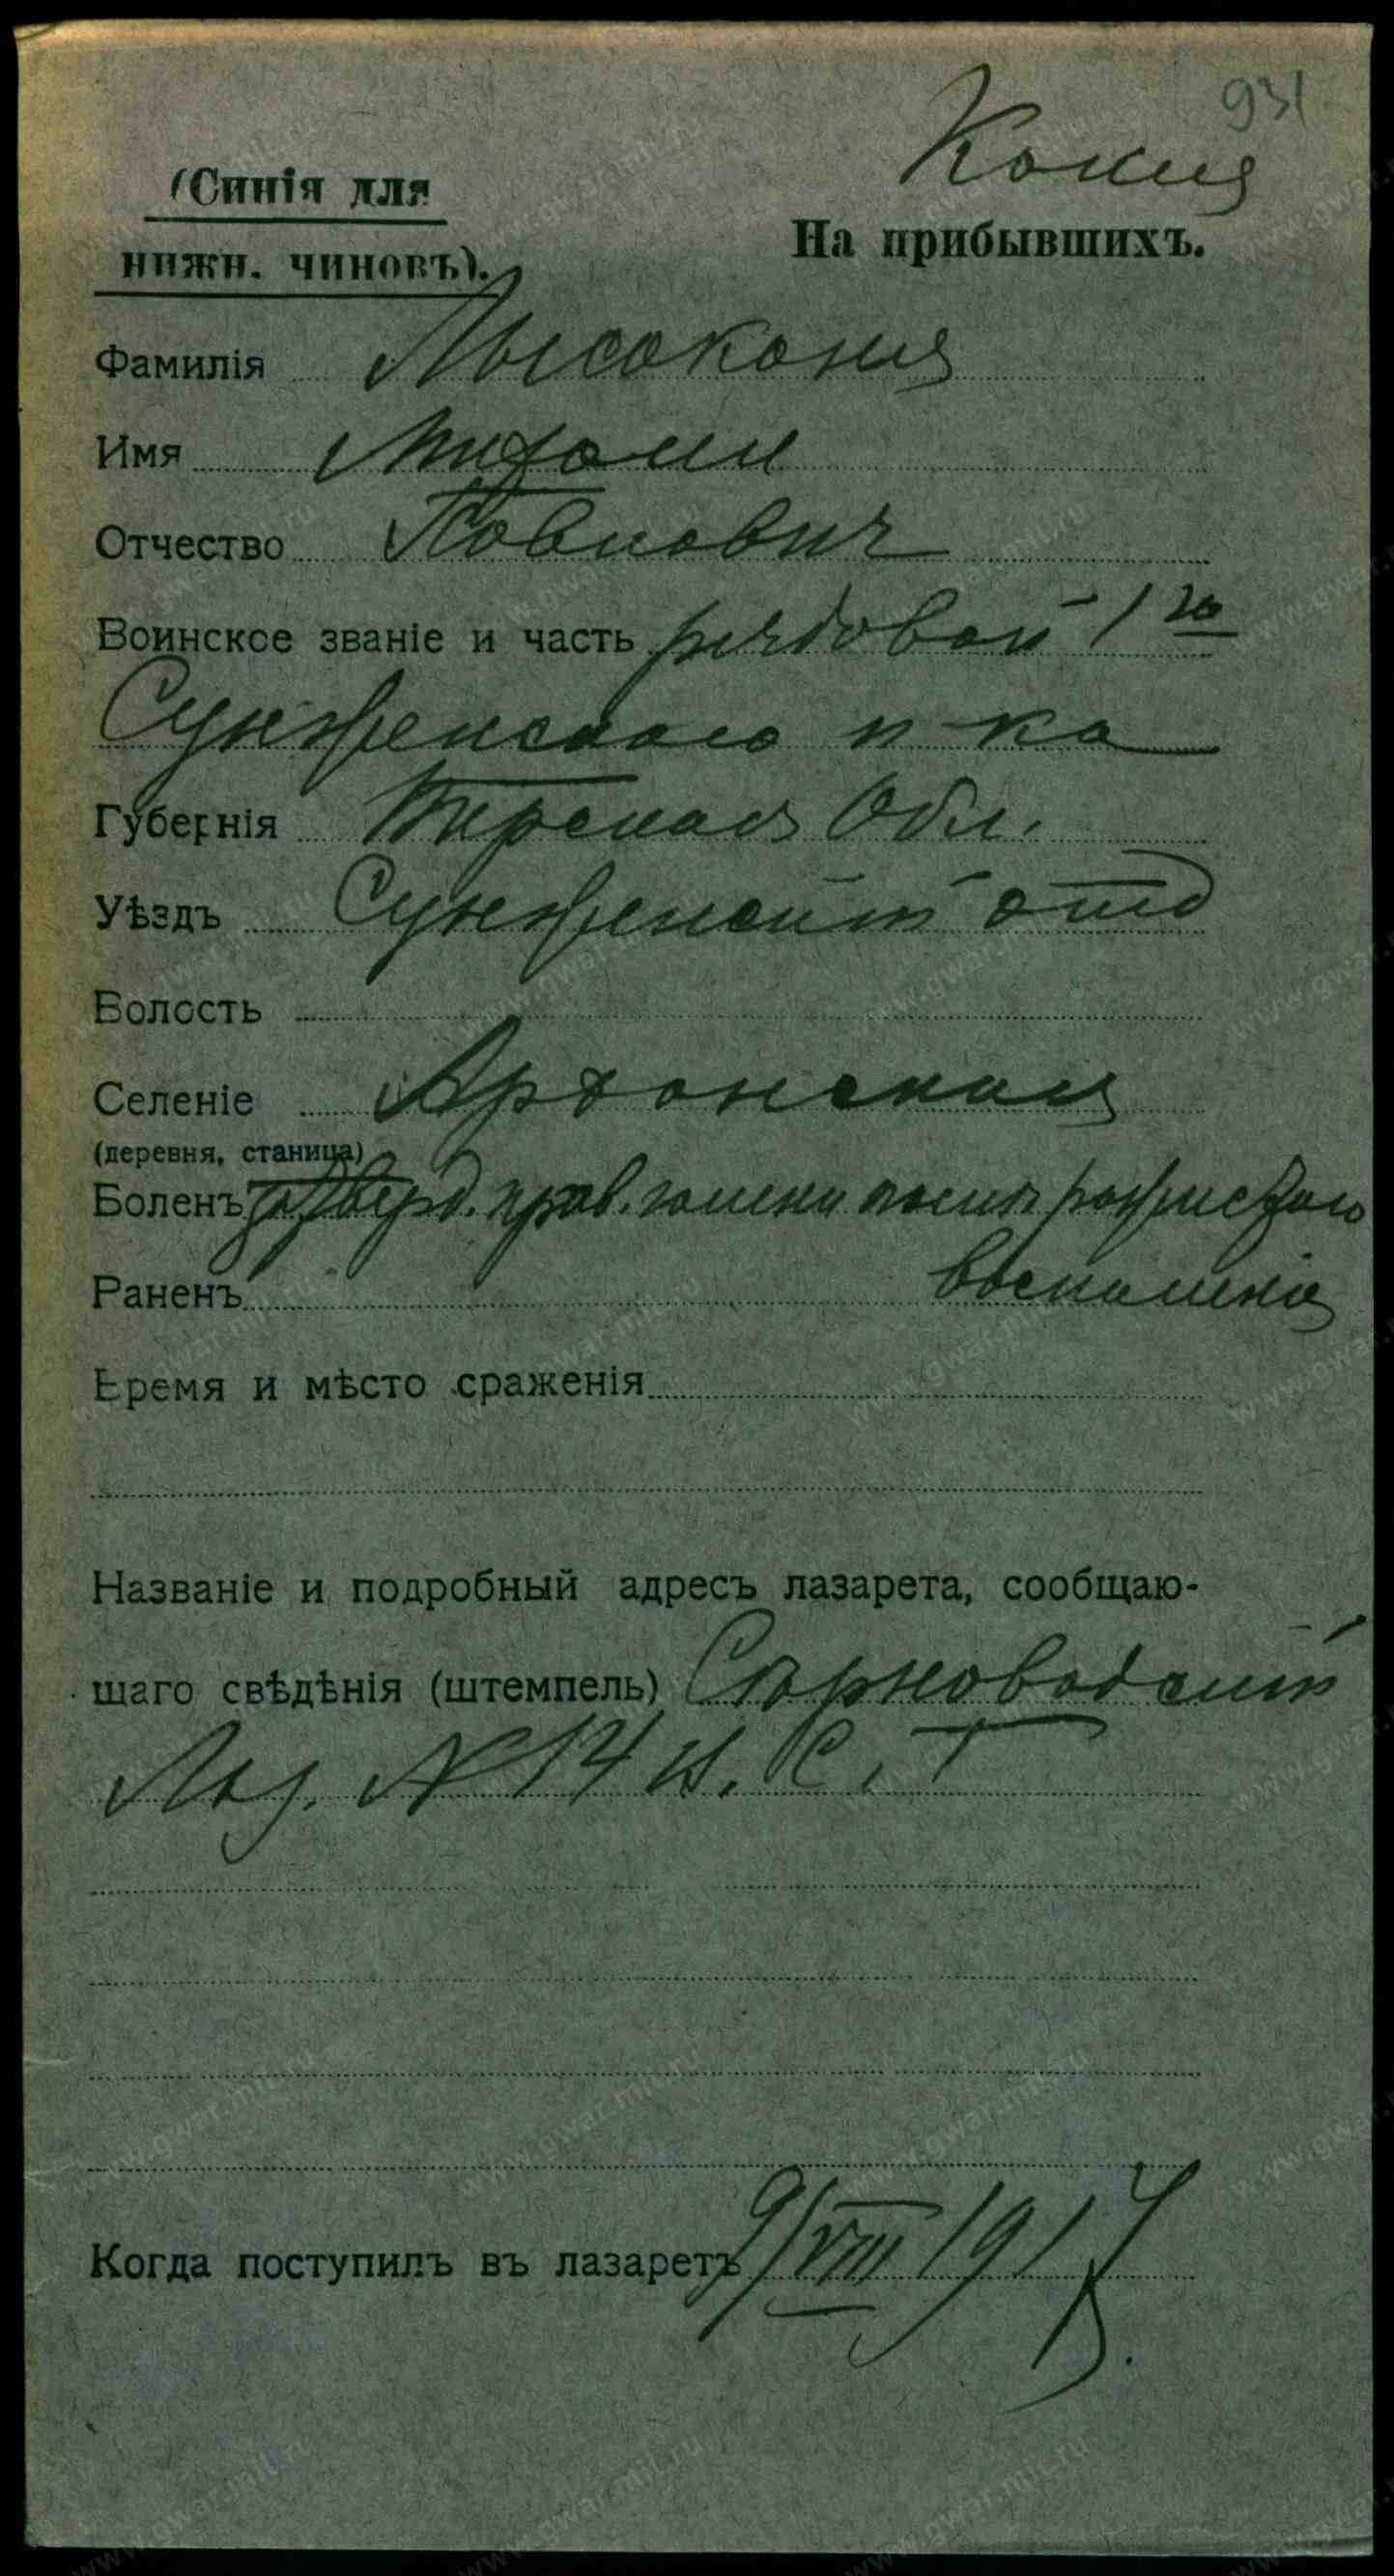 931
Копия
(Синія для
нижн. чиновъ).
На прибывшихъ.
Фамилія Лысоконя
Имя Михаил
Отчество Павлович
Воинское званіе и часть рядовой 1го
Сунженского п-ка
Губернія Терская Обл.
Уѣздъ Сунженский отд
Волость
Селеніе Ардонская
(деревня, станица)
Боленъ затверд. прав. голени после рожистого
воспаления
Раненъ
Время и мѣсто сраженія
Названіе и подробный адресъ лазарета, сообщаю-
щаго свѣдѣнія (штемпель) Серноводский
Лаз. N 14 В. С. Г
Когда поступилъ въ лазаретъ 9/VIII 1917